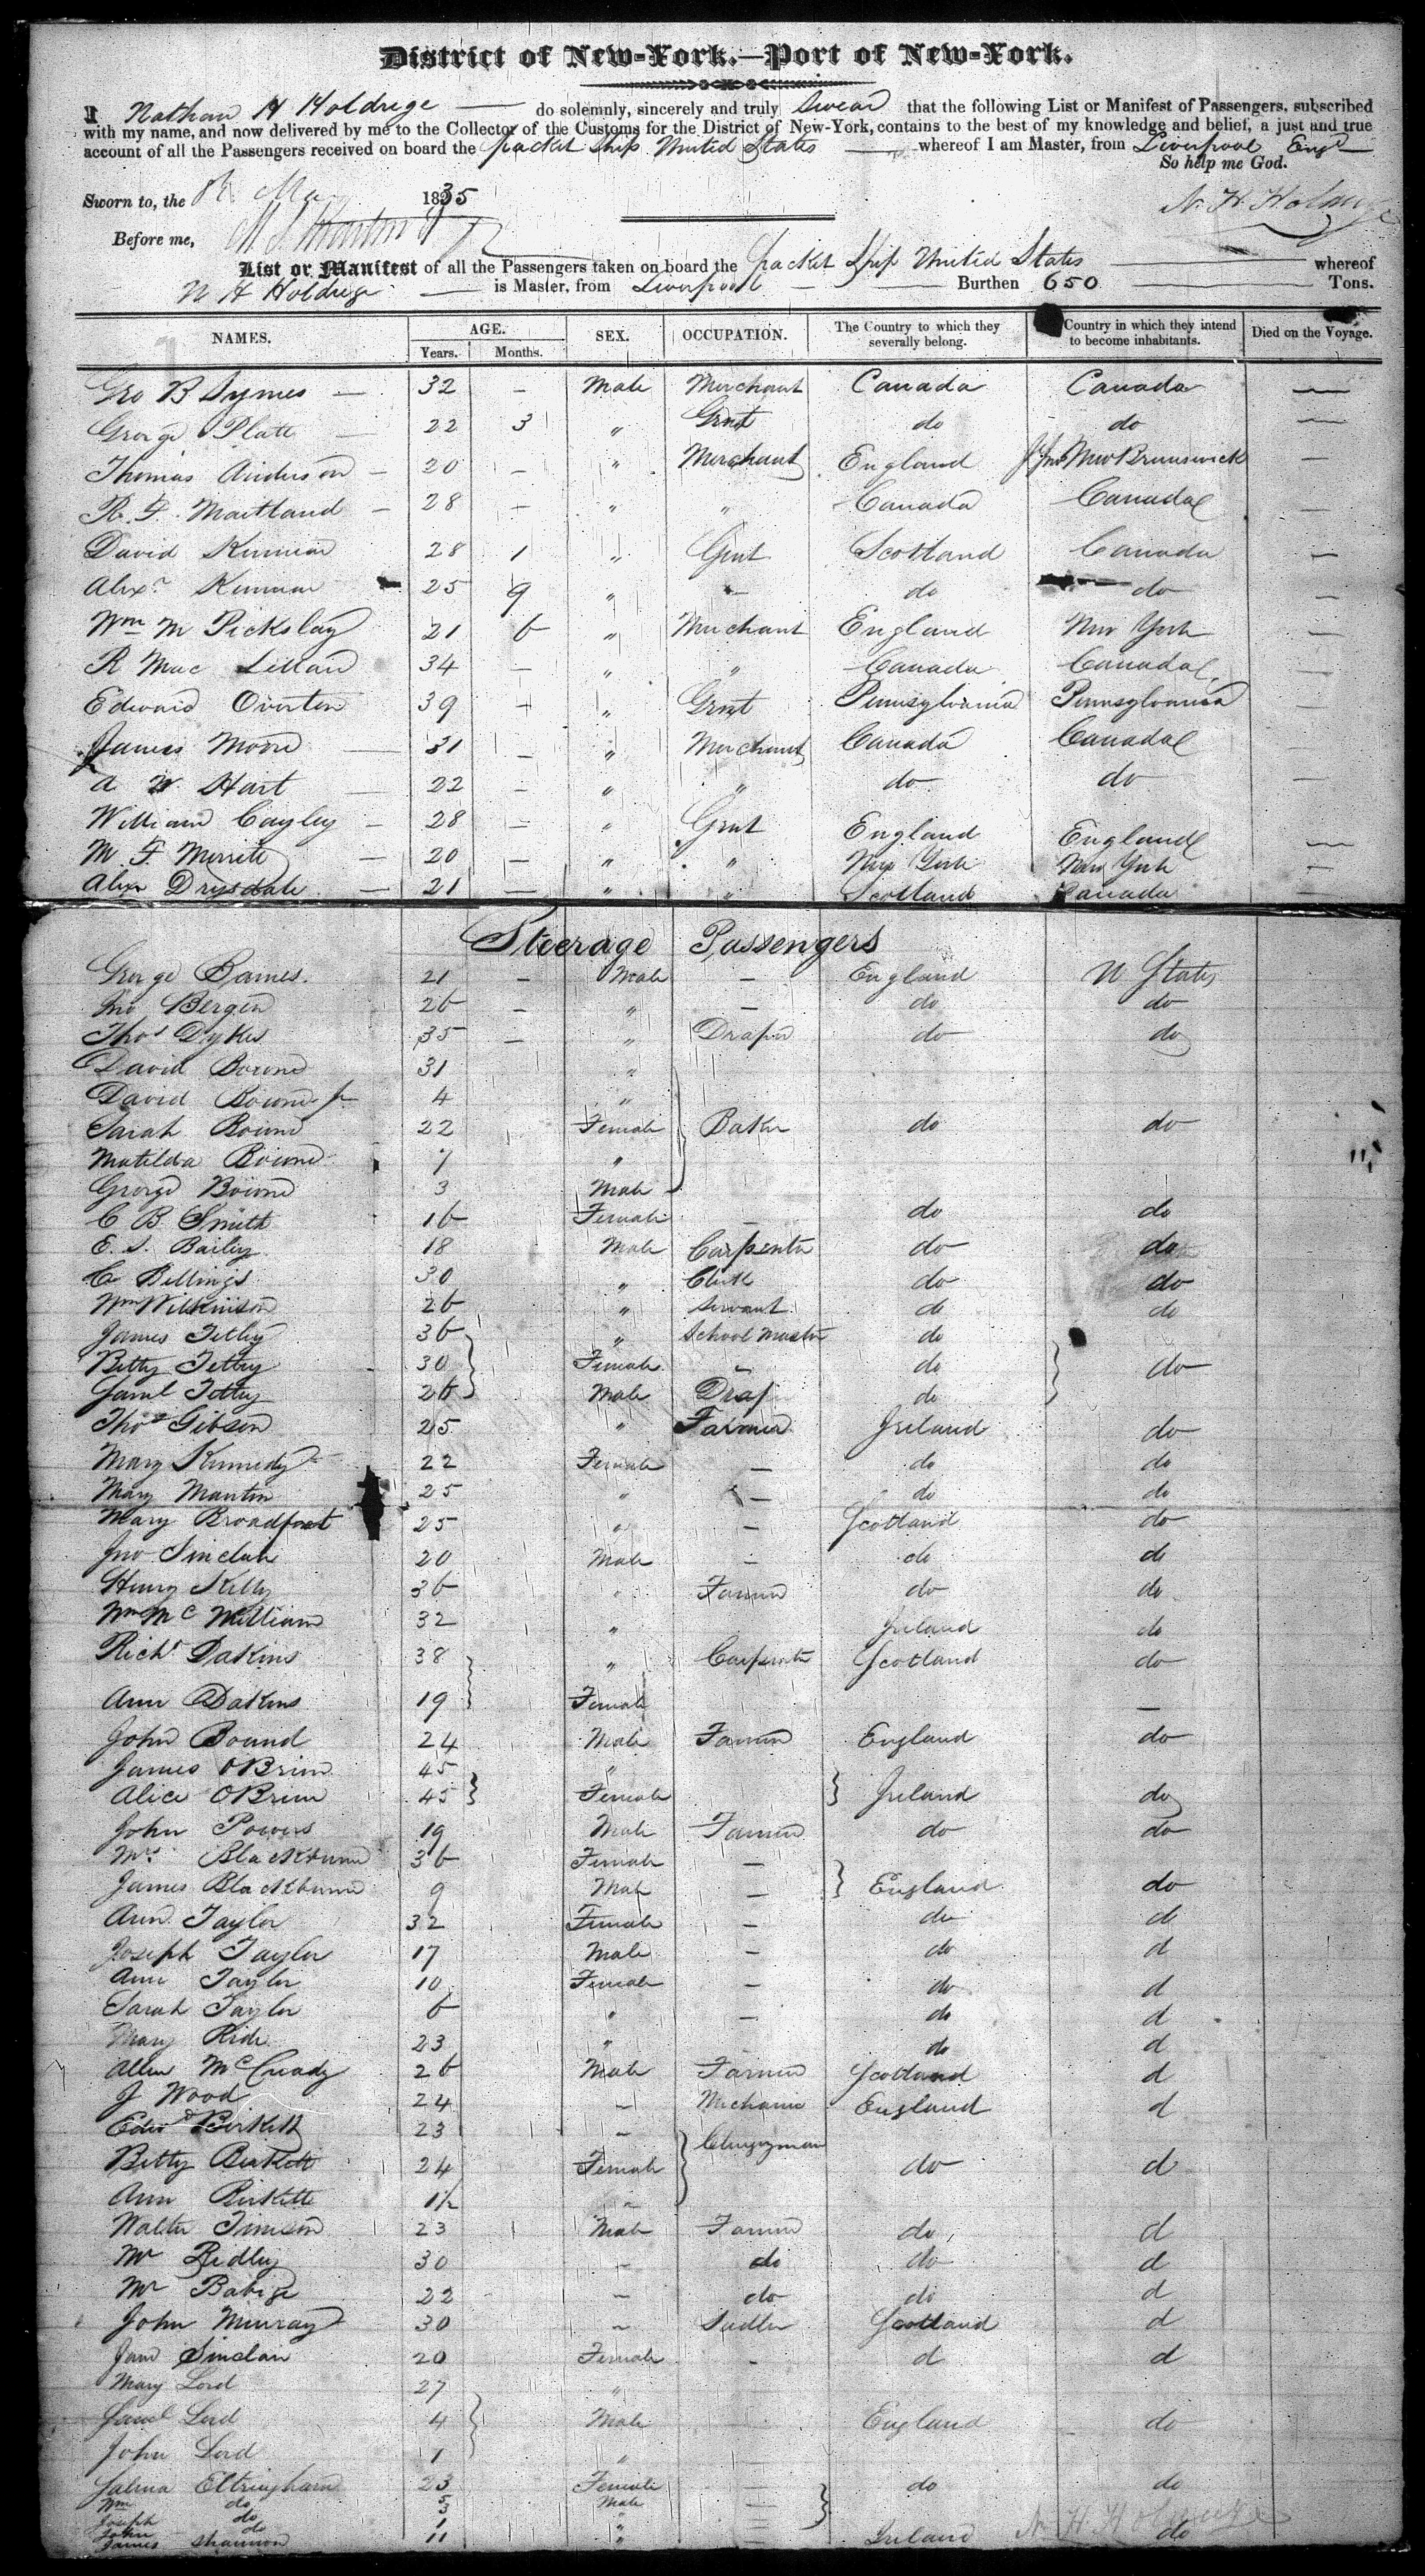 District of New-York.—Port of New-York.
I Nathan H Holdrege — do solemnly, sincerely and truly Swear that the following List or Manifest of Passengers, subscribed
with my name, and now delivered by me to the Collector of the Customs for the District of New-York, contains to the best of my knowledge and belief, a just and true
account of all the Passengers received on board the packet ship United States — whereof I am Master, from Liverpool Engd
So help me God.
Sworn to, the 1835 N. H. Holdrege
Before me,
List or Manifest of all the Passengers taken on board the packet Ship United States — whereof
N H Holdrege — is Master, from Liverpool — Burthen 650 Tons.
NAMES. AGE. SEX. OCCUPATION. The Country to which they severally belong. Country in which they intend to become inhabitants. Died on the Voyage.
Years. Months.
Geo B Symes — 32 — Male Merchant Canada Canada —
George Platt — 22 3 " Gent do do —
Thomas Anderson — 20 — " Merchant England New Brunswick —
R. F. Maitland — 28 — " " Canada Canada —
David Kinnear 28 1 " Gent Scotland Canada —
Alexr Kinnear 25 9 " — do do —
Wm M Pickslay 21 6 " Merchant England New York —
R Mac Lellan 34 — " " Canada Canada —
Edward Overton 39 — " Gent Pennsylvania Pennsylvania —
James Moore — 31 — " Merchant Canada Canada —
A W Hart — 22 — " " do do —
William Cayley — 28 — " Gent England England —
M. F Merritt — 20 — " " New York New York —
Alexr Drysdale — 21 — " " Scotland Canada —
Steerage Passengers
George Barnes. 21 — Male — England U States
Jno Bergen 26 — " — do do
Thos Dykes 35 — " Draper do do
David Bowne 31 "
David Bowne jr 4 "
Sarah Bowne 22 Female Baker do do
Matilda Bowne 7 "
George Bowne 3 Male
C B Smith 16 Female — do do
E. S. Bailey 18 Male Carpenter do do
C Billings 30 " Clerk do do
Wm Wilkinson 26 " Servant do do
James Tetley 36 " School Master do
Betty Tetley 30 Female — do do
Saml Tetley 26 Male Drap do
Thos Gibson 25 " Farmer Ireland do
Mary Kennedy 22 Female — do do
Mary Martin 25 " — do do
Mary Broadfoot 25 " — Scotland do
Jno Sinclair 20 Male — do do
Henry Kelly 36 " Farmer do do
Wm Mc William 32 " Ireland do
Richd Dakins 38 " Carpenter Scotland do
Ann Dakins 19 Female —
John Bound 24 Male Farmer England do
James OBrien 45 "
Alice OBrien 45 Female Ireland do
John Powers 19 Male Farmer do do
Mrs Blackburne 36 Female —
James Blackburne 9 Male — England do
Ann Taylor 32 Female — do d
Joseph Taylor 17 Male — do d
Ann Taylor 10 Female — do d
Sarah Taylor 6 " — do d
Mary Ride 23 " do d
Allen McCready 26 Male Farmer Scotland d
J Wood 24 — Mechanic England d
Edwd Birkett 23 — Clergyman
Betty Birkett 24 Female do d
Ann Birkett 1½ "
Walter Timson 23 Male Farmer do d
Mr Ridley 30 — do do d
Mr 22 — do do d
John Murray 30 — Sadler Scotland d
Jane Sinclair 20 Female — d d
Mary Lord 27 "
Saml Lord 4 Male England do
John Lord 1 "
Eltringham 23 Female — do do
Wm do 5 Male —
Joseph do 3 " —
John do 1 " —
James Shannon 11 " — Ireland do
N. H Holdrege